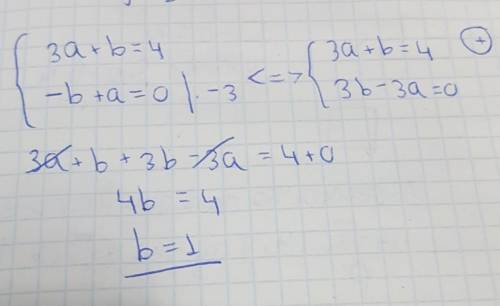 3a+b=4
-b+a=0 |·-3 <=> 3a+b=4 (+)
3b-3a=0
3a+b+3b-3a=4+0
4b=4
b=1